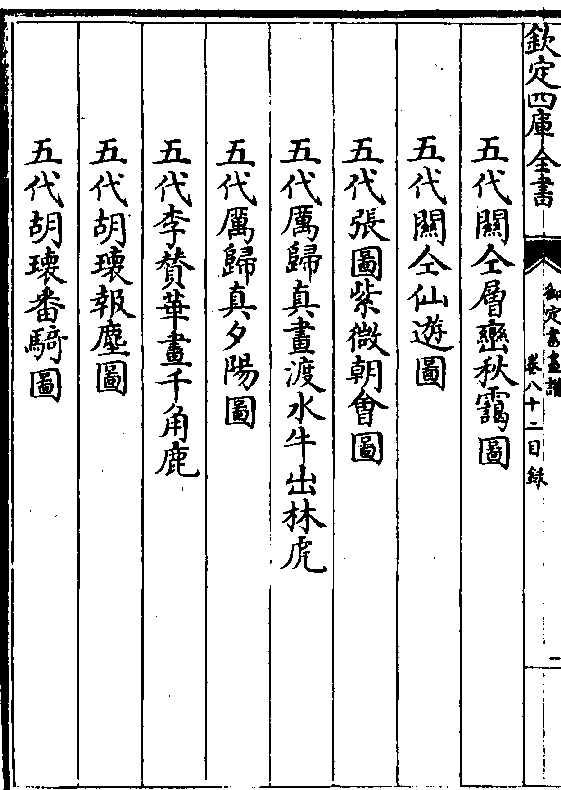 欽定四庫全書
御定書畫譜
卷八十二目錄
一
五代關仝層巒秋靄圖
五代關仝仙遊圖
五代張圖紫微朝會圖
五代厲歸真畫渡水牛出林虎
五代厲歸真夕陽圖
五代李贊華畫千角鹿
五代胡瓌報塵圖
五代胡瓌番騎圖